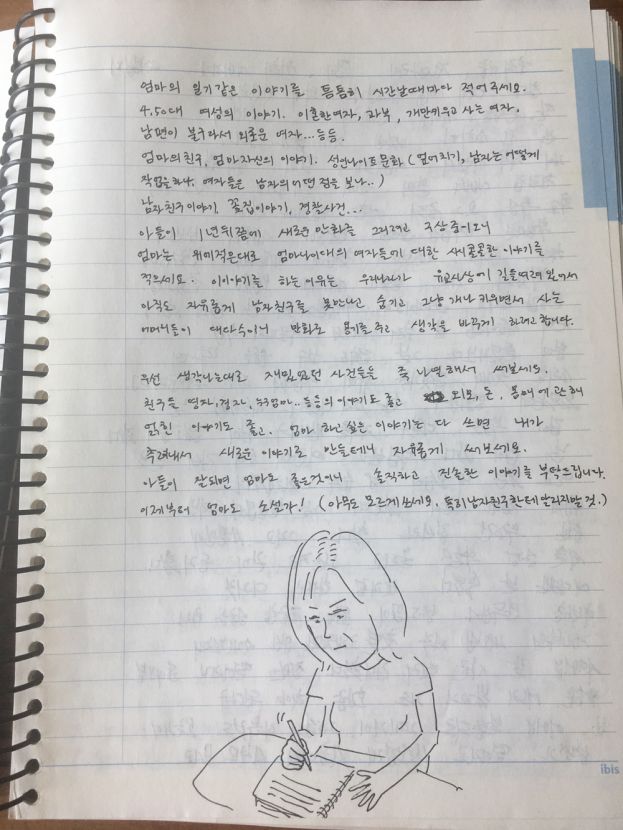 엄마의 일기같은 이야기를 틈틈히 시간날때마다 적어주세요.
4,50대 여성의 이야기. 이혼한여자, 과부, 개만키우고 사는 여자.
남편이 불구라서 외로운 여자...등등.
엄마의친구, 엄마자신의 이야기. 성인나이트문화 (엎어치기, 남자는 어떻게
작업을하나, 여자들은 남자의 어떤 점을 보나..)
남자친구이야기, 꽃집이야기, 경찰사건...
아들이 1년뒤쯤에 새로운 만화를 그리려고 구상중이오니
엄마는 위에적은대로 엄마나이대의 여자들에 대한 시시콜콜한 이야기를
적으세요. 이이야기를 하는이유는 우리나라가 유교사상에 길들여져 있어서
아직도 자유롭게 남자친구를 못만나고 숨기고 그냥 개나 키우면서 사는
어머니들이 대다수이니 만화로 용기를 주고 생각을 바꾸게 하려고합니다.
우선 생각나는대로 재밌었던 사건들을 죽 나열해서 써보세요.
친구들 영자, 경자, 엄마..등등의 이야기도 좋고 외모, 돈, 몸매에 관해
얽힌 이야기도 좋고. 엄마 하고싶은 이야기는 다 쓰면 내가
추려내서 새로운 이야기로 만들테니 자유롭게 써보세요.
아들이 잘되면 엄마도 좋은것이니 솔직하고 진솔한 이야기를 부탁드립니다.
이제부터 엄마도 소설가! (아무도 모르게쓰세요. 특히남자친구한테알리지말것.)
ibis